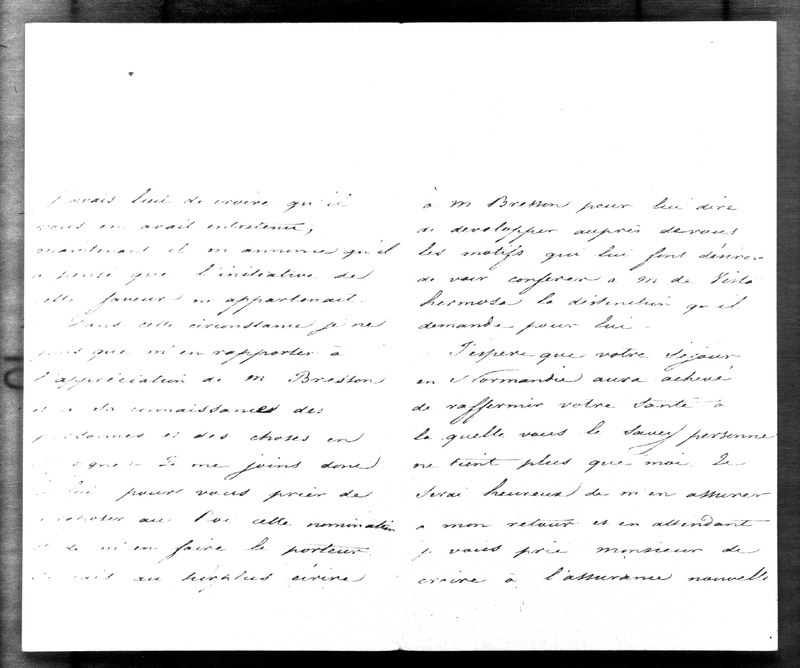 j'avais lieu de croire qu'il
vous en avait entretenu,
maintenant il m'annonce qu'il
a pensé que l'initiative de
cette faveur m'appartenait.
Dans cette circonstance je ne
puis que m'en rapporter à
l'appréciation de M Bresson
et à sa connaissance des
personnes et des choses en
Je me joins donc
à lui pour vous prier de
au Roi cette nomination
et de m'en faire le porteur.
Je vais au surplus écrire
à M Bresson pour lui dire
de developper auprès de vous
les motifs qui lui font désirer
de voir conferer a M de Vista
hermosa la distinction qu'il
demande pour lui.
J'espere que votre Sejour
en Normandie aura achevé
de raffermir votre Santé à
la quelle vous le savez personne
ne tient plus que moi. Je
Serai heureux de m'en assurer
a mon retour et en attendant
je vous prie monsieur de
croire à l'assurance nouvelle